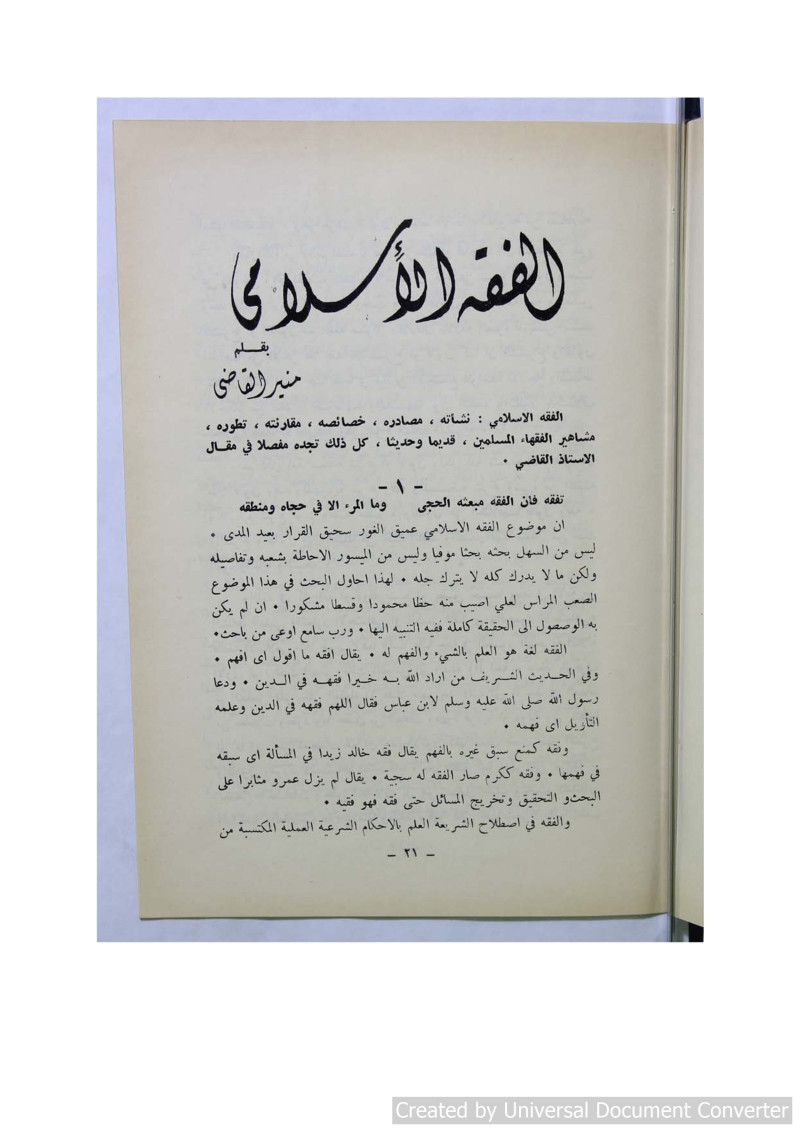 الفقه الأسلامي
بقـــلم
منير القاضي
الفقه الاسلامي : نشأته ، مصادره ، خصائصه ، مقارنته ، تطوره ،
مشاهير الفقهاء المسلمين ، قديما وحديثا ، كل ذلك تجده مفصلا في مقـال
الاستاذ القاضي •
– ١ –
تفقه فان الفقه مبعثه الحجى وما المرء الا في حجاه ومنطقه
ان موضوع الفقه الاسلامي عميق الغور سحيق القرار بعيد المدى •
ليس من السهل بحثه بحثا موفيا وليس من الميسور الاحاطة بشعبه وتفاصيله
ولكن ما لا يدرك كله لا يترك جله • لهذا احاول البحث في هذا الموضوع
الصعب المراس لعلي اصيب منه حظا محمودا وقسطا مشكورا • ان لم يكن
به الوصصول الى الحقيقة كاملة ففيه التنبيه اليها • ورب سامع اوعى من باحث•
الفقه لغة هو العلم بالشيء والفهم له • يقال افقه ما اقول اى افهم •
وفي الحـديث الشـريف من اراد الله بـه خـيرا فقهـه في الـدين • ودعا
رسول الله صلى الله عليه وسلم لابن عباس فقال اللهم فقهه في الدين وعلمه
التأريل اى فهمه •
وفقه كمنع سبق غيره بالفهم يقال فقه خالد زيدا في المسألة اى سبقه
في فهمها • وفقه ككرم صار الفقه له سجية • يقال لم يزل عمرو مثابرا على
البحثو التحقيق وتخريج المسائل حتى فقه فهو فقيه •
والفقه في اصطلاح الشريعة العلم بالاحكام الشرعية العملية المكتسبة من
– ٢١ –
Created by Universal Document Converter